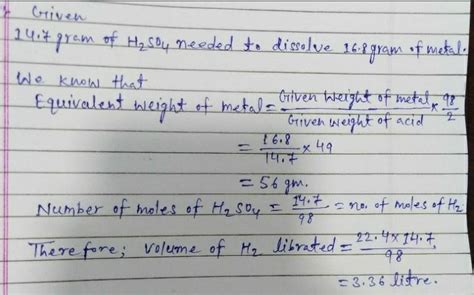 Given
14.7 gram of H₂SO₄ needed to dissolve 16.8 gram of metal.
We know that
Equivalent weight of metal = Given weight of metal / Given weight of acid × 98/2
= 16.8/14.7 × 49
= 56 gm.
Number of moles of H₂SO₄ = 14.7/98 = no. of moles of H₂
Therefore; volume of H₂ librated = 22.4×14.7/98
= 3.36 litre.